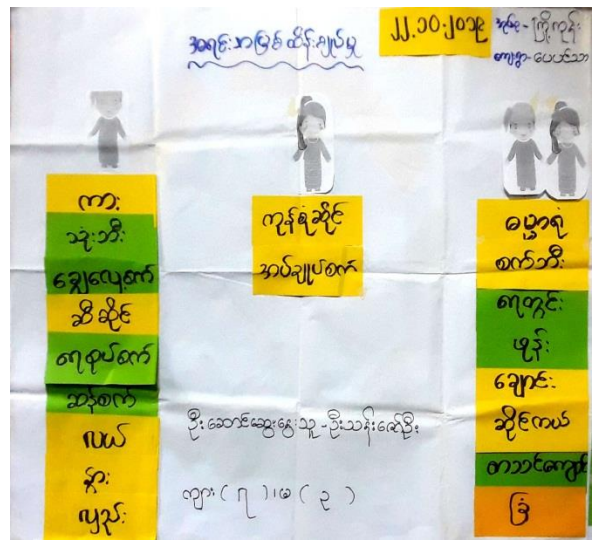 အရင်းအမြစ်ထိန်းချုပ်မှု
၂၂.၁၀.၂၀၁၉
အုပ်စု - ကြို့ကုန်း
ကျေးရွာ - ပေပင်သာ
ကား
သုံးဘီး
ချွေလှေ့စက်
ဆီဆိုင်
ရေစုပ်စက်
ဆန်စက်
လယ်
နွား
လှည်း
ကုန်စုံဆိုင်
အပ်ချုပ်စက်
ဓမ္မာရုံ
စက်ဘီး
ရေတွင်း
ဖုန်း
ချောင်း
ဆိုင်ကယ်
စာသင်ကျောင်း
ခြံ
ဦးဆောင်ဆွေးနွေးသူ - ဦးသန်းဇော်ဦး
ကျား ( ၇ ) ၊ မ ( ၃ )